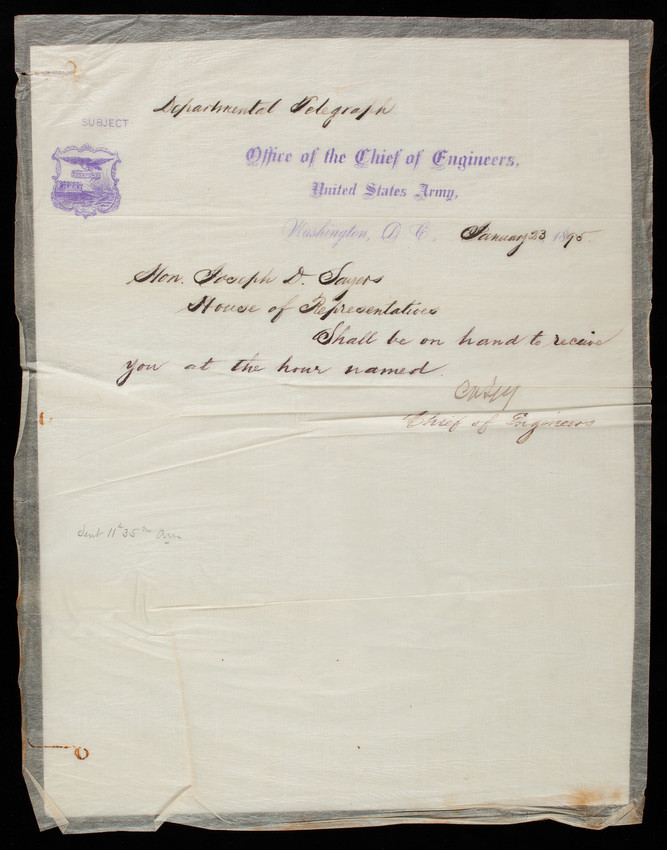 Departmental Telegraph
SUBJECT
Office of the Chief of Engineers,
United States Army,
Washington, D. C. January 23 1895.
Hon. Joseph D. Sayers
House of Representatives
Shall be on hand to receive
you at the hour named.
Casey
Chief of Engineers
Sent 11h 35m